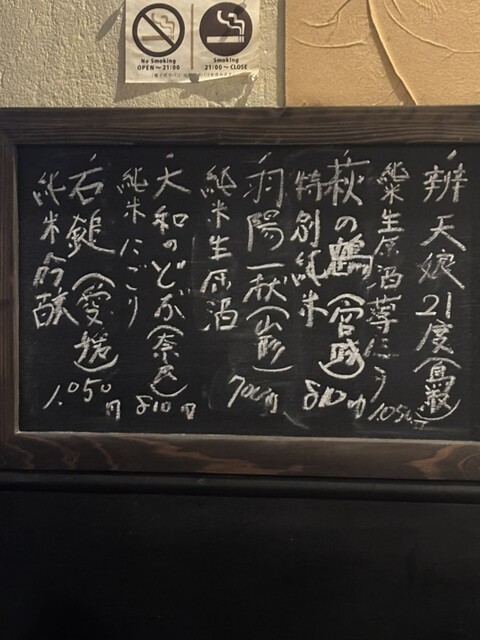 No Smoking
OPEN〜21:00
Smoking
21:00〜CLOSE
辨天娘21度(鳥取)
純米生原酒 にごり 1.050円
萩の鶴(宮城)
特別純米 810円
羽陽一献(山形)
純米生原酒 700円
大和のどぶ(奈良)
純米にごり 810円
石鎚(愛媛)
純米吟醸 1.050円